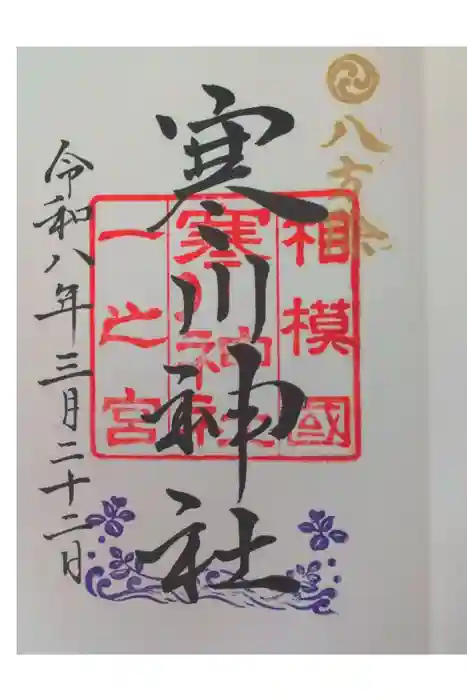 八方除
相模國
寒川神社
一之宮
寒川神社
令和八年三月二十二日